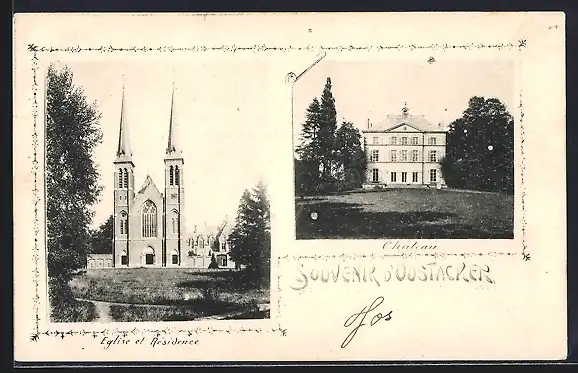 Chateau
SOUVENIR D'OOSTACKER
Eglise et Résidence